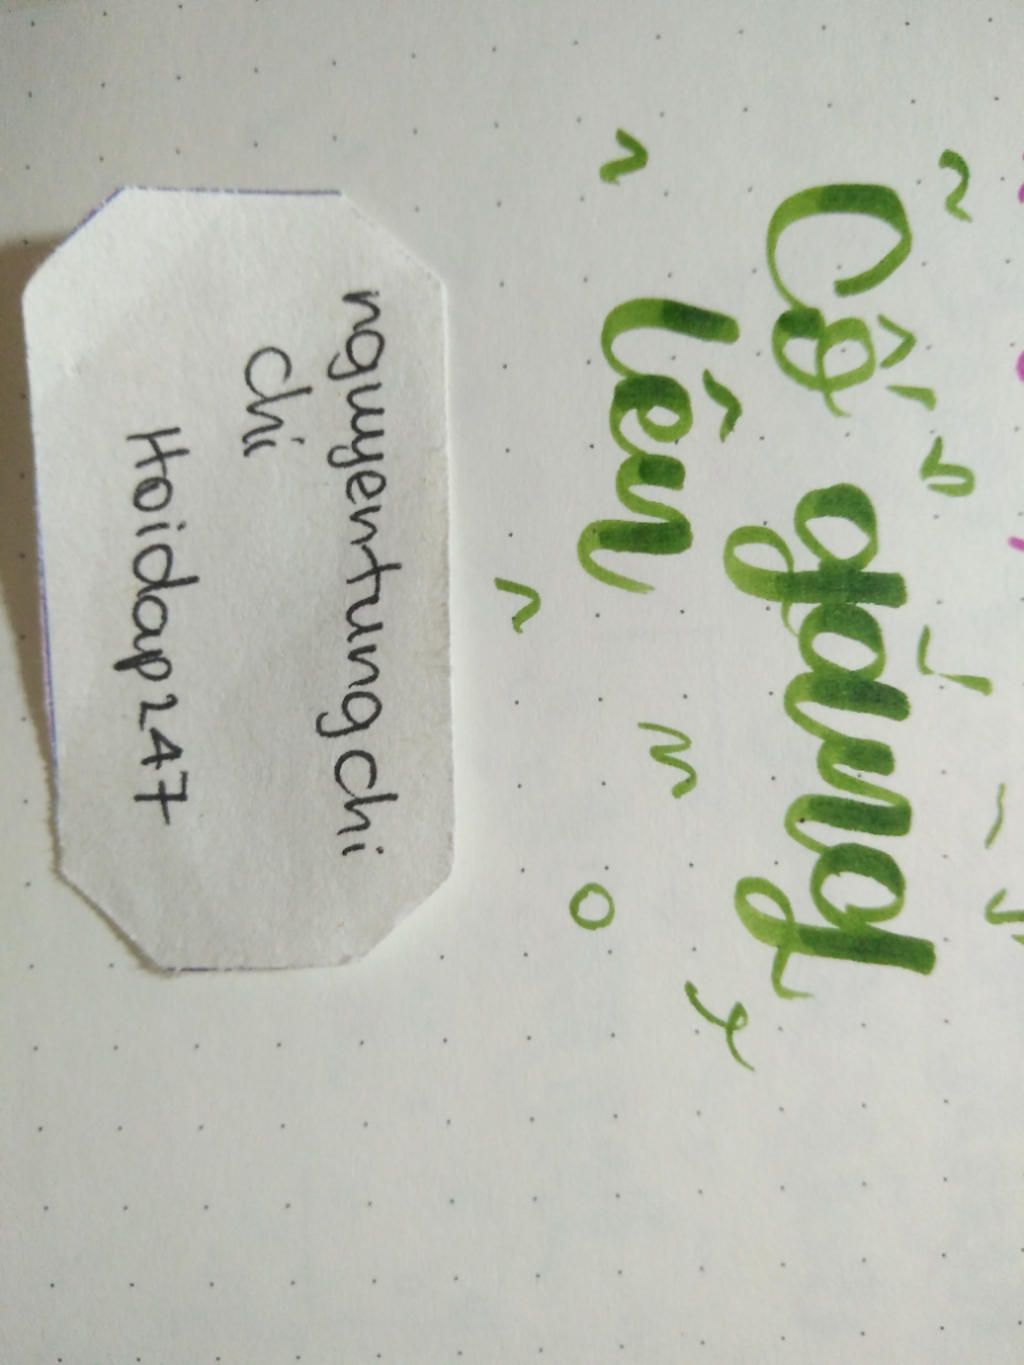 Cố gắng
lên
nguyentungchi
chi
Hoidap247